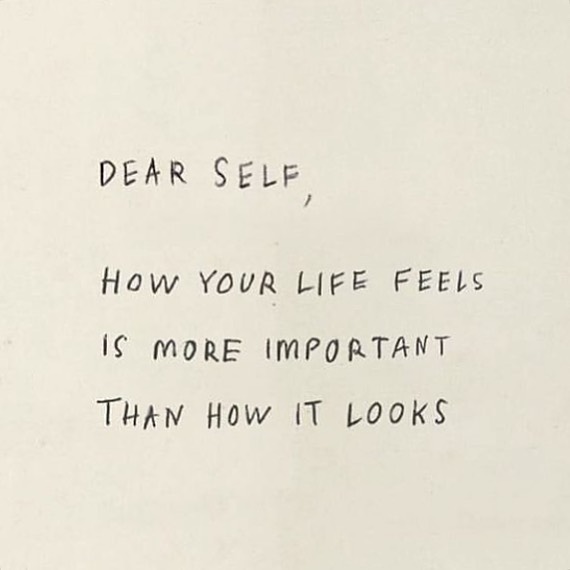 DEAR SELF,
HOW YOUR LIFE FEELS
IS MORE IMPORTANT
THAN HOW IT LOOKS